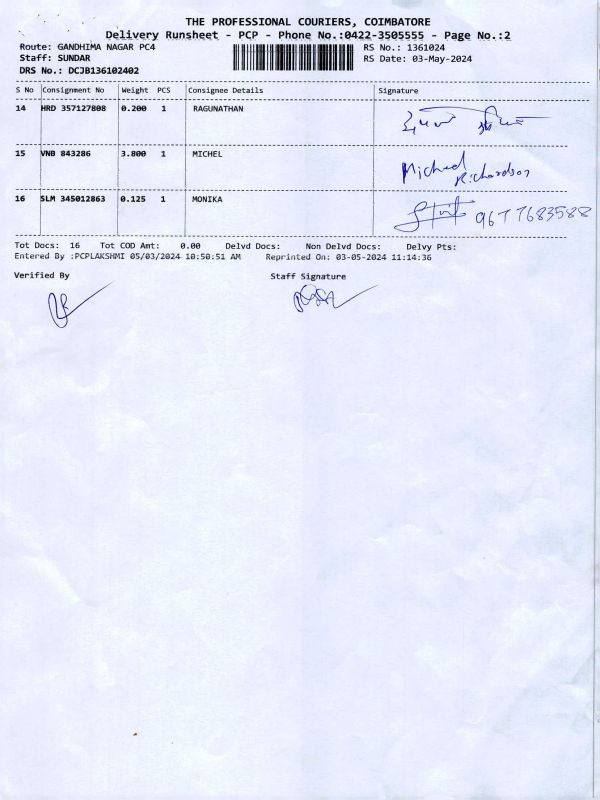 THE PROFESSIONAL COURIERS, COIMBATORE
Delivery Runsheet - PCP - Phone No.:0422-3505555 - Page No.:2
Route: GANDHIMA NAGAR PC4 RS No.: 1361024
Staff: SUNDAR RS Date: 03-May-2024
DRS No.: DCJB136102402
S No Consignment No Weight PCS Consignee Details Signature
14 HRD 357127808 0.200 1 RAGUNATHAN
15 VNB 843286 3.800 1 MICHEL Michael Richardson
16 SLM 345012863 0.125 1 MONIKA 9677683588
Tot Docs: 16 Tot COD Amt: 0.00 Delvd Docs: Non Delvd Docs: Delvy Pts:
Entered By :PCPLAKSHMI 05/03/2024 10:50:51 AM Reprinted On: 03-05-2024 11:14:36
Verified By Staff Signature